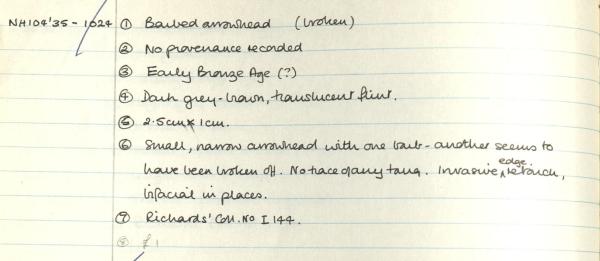 NH104'35 - 1024 ① Barbed arrowhead (broken)
② No provenance recorded
③ Early Bronze Age (?)
④ Dark grey-brown, translucent flint.
⑤ 2.5cm x 1cm.
⑥ Small, narrow arrowhead with one barb - another seems to
have been broken off. No trace of any tang. Invasive edge retouch,
bifacial in places.
⑦ Richards' Coll. No I 144.
⑧ £1